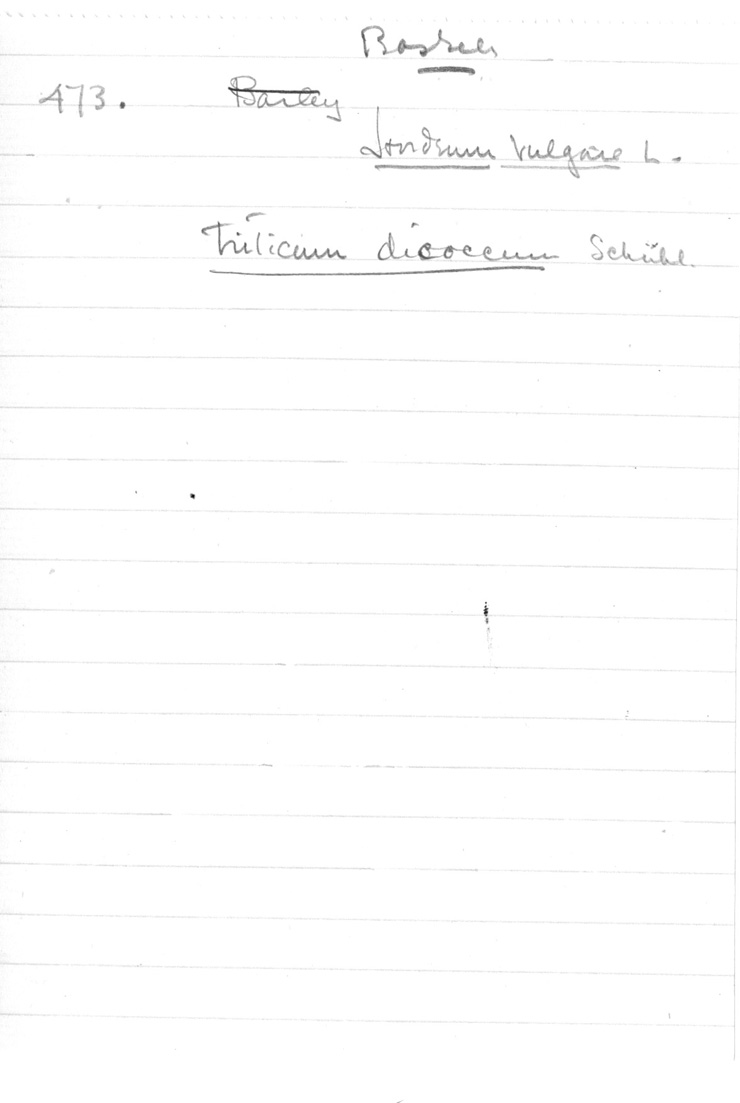 Baskets
473. Barley
Hordeum vulgare L.
Triticum dicoccum Schübl.